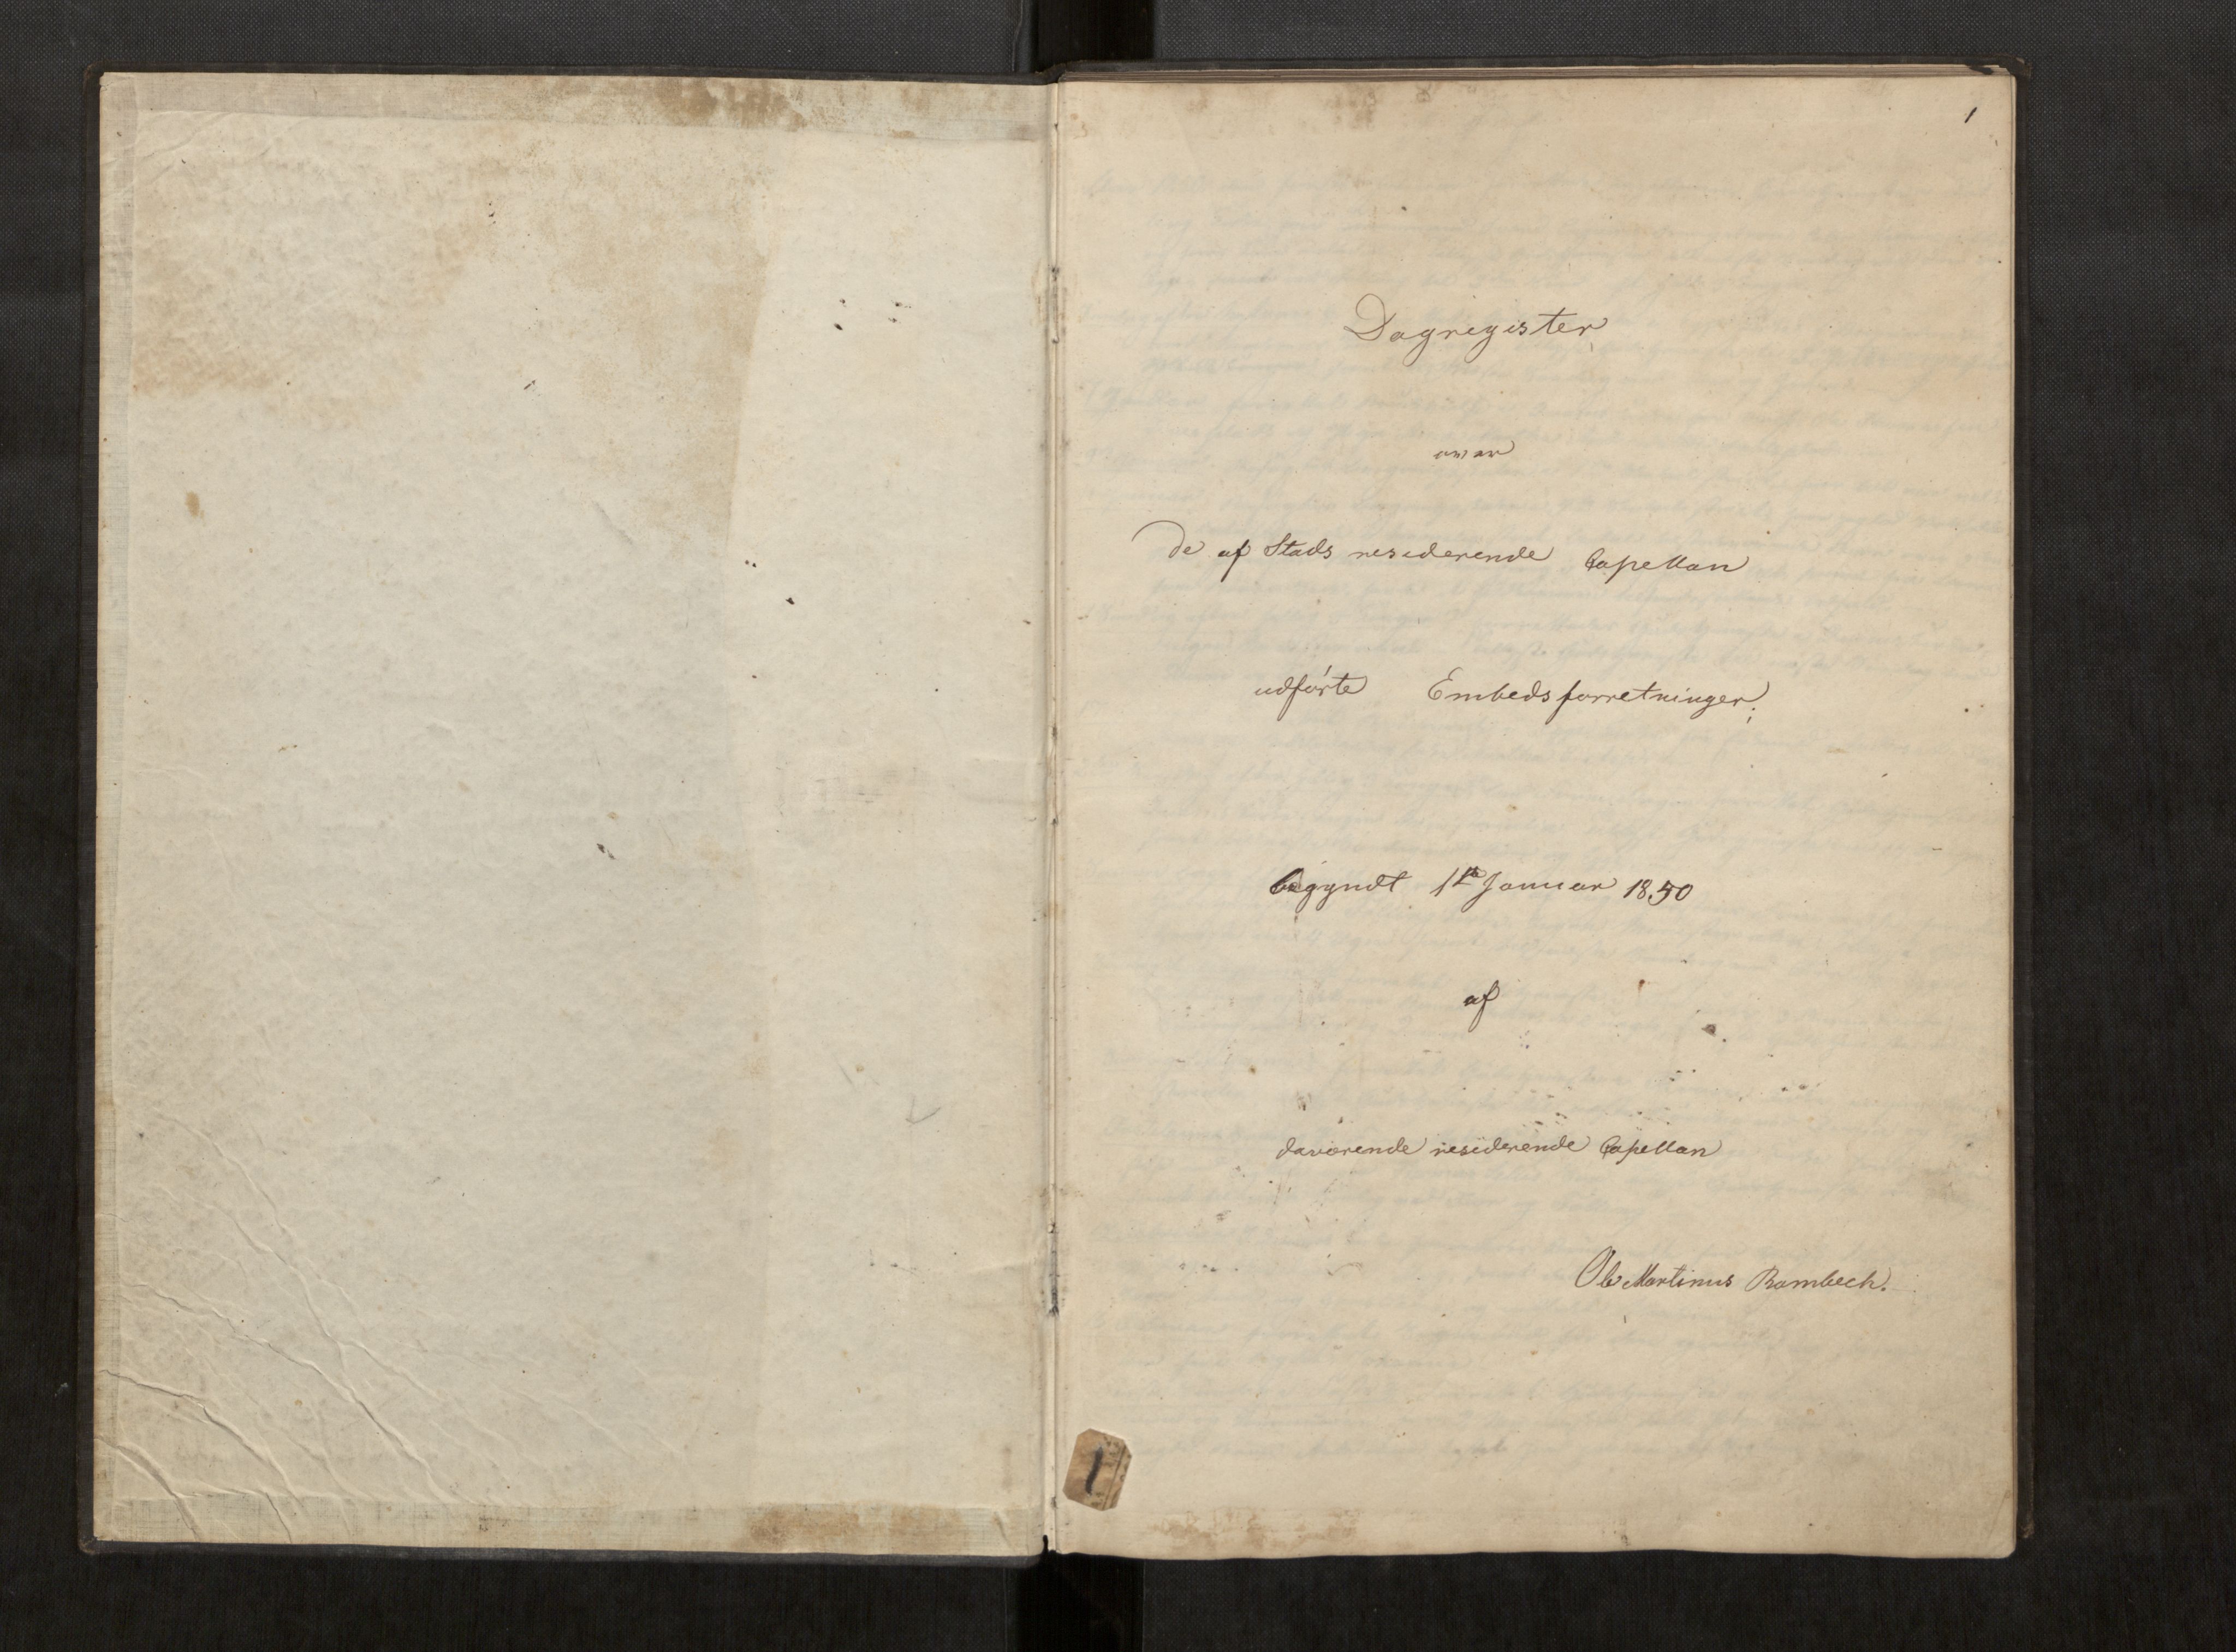 1
Dagregister
over
De af Stads residerende Capellan
udførte Embedsforretninger;
begyndt 1ste Januar 1850
af
daværende residerende Capellan
Ole Martinus Rambech.
1